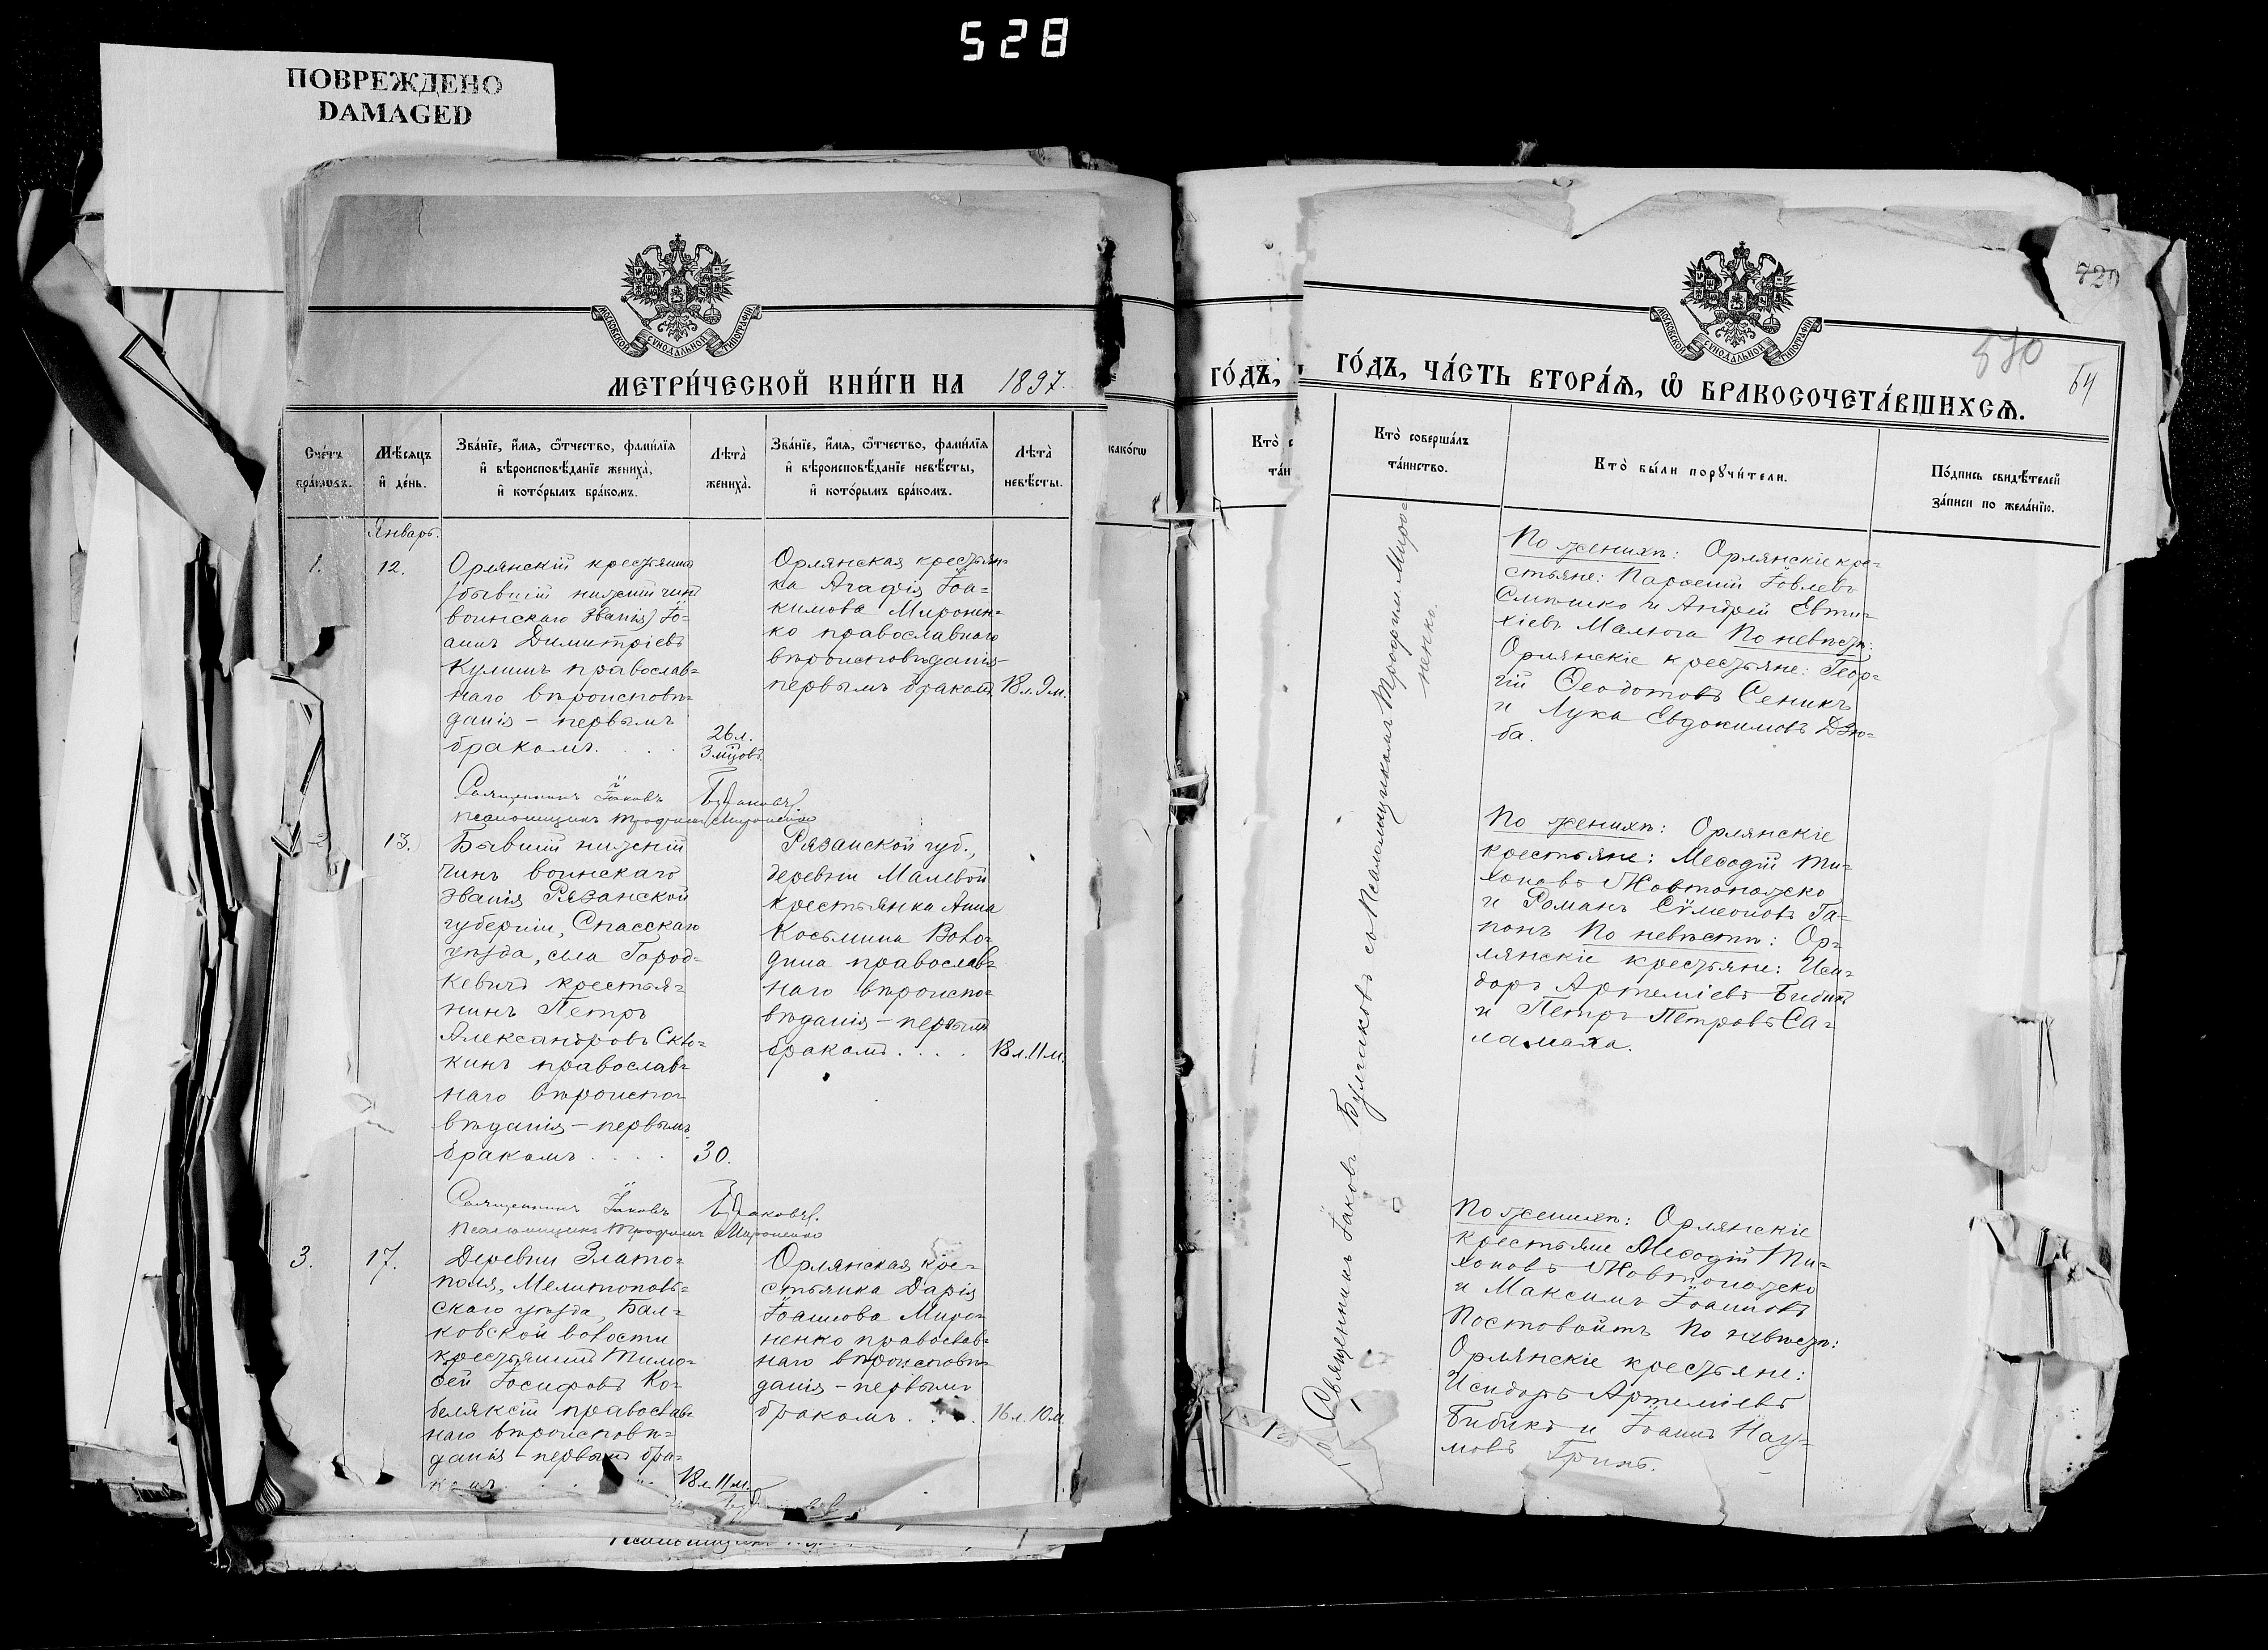 528
ПОВРЕЖДЕНО
DAMAGED
МОСКОВСКОЙ СѴНОДАЛЬНОЙ ТИПОГРАФІИ
МЕТРИ́ЧЕСКОЙ КНИ́ГИ НА 1897.
Сче́тъ
бра́ковъ.
Мѣ́сяцъ
и҆ де́нь.
Зва́нїе, и҆́мѧ, ѻ҆́тчество, фами́лїѧ
и҆ вѣроисповѣ́данїе жениха̀,
и҆ кото́рымъ бра́комъ.
Лѣта̀
жениха̀.
Зва́нїе, и҆́мѧ, ѻ҆́тчество, фами́лїѧ
и҆ вѣроисповѣ́данїе невѣ́сты,
и҆ кото́рымъ бра́комъ.
Лѣта̀
невѣ́сты.
Январь.
1.
12.
Орлянскій крестьянинъ
(бывшій нижній чинъ
воинскаго званія) Іо-
аннъ Димитріевъ
Кулишъ православ-
наго вѣроисповѣ-
данія – первымъ
бракомъ. . . .
26 л.
3 мцовъ.
Орлянская крестьян-
ка Агафія Іоа-
кимова Миронен-
ко православнаго
вѣроисповѣданія
первымъ бракомъ
18 л. 9 м.
Священникъ Іаковъ Булгаковъ.
Псаломщикъ Трофимъ Мироненко
13.
Бывшій нижній
чинъ воинскаго
званія Рязанской
губерніи, Спасскаго
уѣзда, села Город-
кевичъ крестья-
нинъ Петръ
Александровъ Скю-
кинъ православ-
наго вѣроиспо-
вѣданія – первымъ
бракомъ . . . .
30.
Рязанской губ.,
деревни Малевой
крестьянка Анна
Косьмина Воло-
дина православ-
наго вѣроиспо-
вѣданія – первымъ
бракомъ . . . .
18 л. 11 м.
Священникъ Іаковъ Булгаковъ.
Псаломщикъ Трофимъ Мироненко
3.
17.
Деревни Злато-
поля, Мелитополь-
скаго уѣзда, Бал-
ковской волости
крестьянинъ Тимо-
ѳей Іосифовъ Ко-
белякскій православ-
наго вѣроисповѣ-
данія – первымъ бра-
комъ
18 л. 11 м.
Орлянская кре-
стьянка Дарія
Іоаннова Миро-
ненко православ-
наго вѣроисповѣ-
данія – первымъ
бракомъ. . . .
16 л. 10 м.
Псаломщикъ
како́гѡ
ГО́ДЪ,
Кто̀
та́и
729
510
64
МОСКОВСКОЙ СѴНОДАЛЬНОЙ ТИПОГРАФІИ
ГО́ДЪ, ЧА́СТЬ ВТОРА́Ѧ, Ѽ БРАКОСОЧЕТА́ВШИХСѦ.
Кто̀ соверша́лъ
та́инство.
Кто̀ бы́ли порꙋчи́тели.
По́дпись свидѣ́телей
за́писи по жела́нїю.
Священникъ Іаковъ Булгаковъ съ Псаломщикомъ Трофим. Миро-
ненко.
По женихѣ: Орлянскіе кре-
стьяне: Парѳеній Іовлевъ
Смѣшко и Андрей Евти-
хіевъ Малюга По невѣстѣ:
Орлянскіе крестьяне: Геор-
гій Ѳеодотовъ Сеникъ
и Лука Евдокимовъ Дзю-
ба.
По женихѣ: Орлянскіе
крестьяне: Меѳодій Ти-
хоновъ Жовтоножко
и Романъ Сѵмеоновъ Га-
понъ По невѣстѣ: Ор-
лянскіе крестьяне: Иси-
доръ Артеміевъ Бибикъ
и Петръ Петровъ Са-
ламаха.
По женихѣ: Орлянскіе
крестьяне Меѳодій Ти-
хоновъ Жовтоножко
и Максимъ Іоанновъ
Постовойтъ По невѣстѣ:
Орлянскіе крестьяне:
Исидоръ Артеміевъ
Бибикъ и Іоаннъ Нау-
мовъ Гринь.